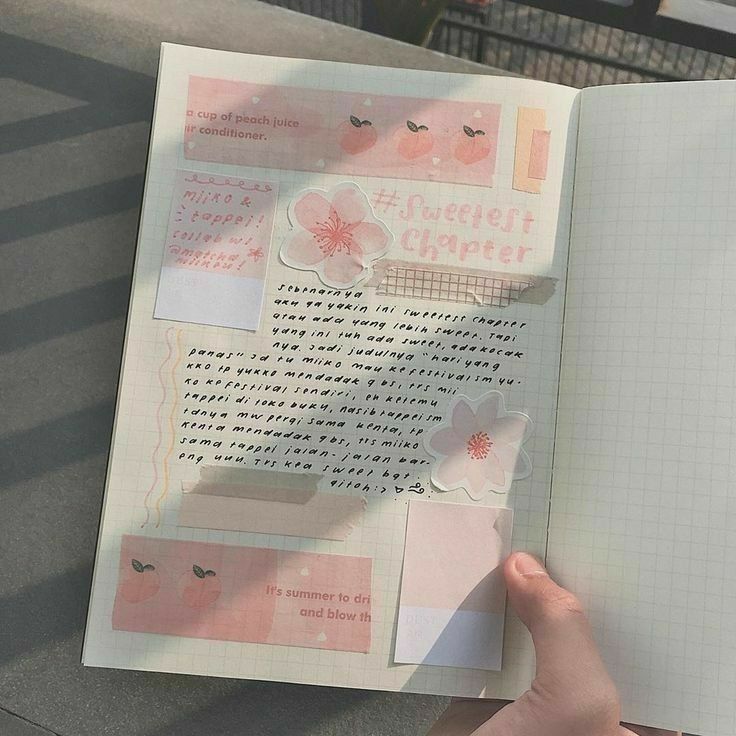 a cup of peach juice
ir conditioner.
miiko &
tappei!
collab w/
@matcha
miikou!
#Sweetest
Chapter
sebenarnya
aku ga yakin ini sweetest chapter
atau ada yang lebih sweet. Tapi
yang ini tuh ada sweet, ada kocak
nya. Jadi judulnya "hari yang
panas" Jd tu miiko mau ke festival sm yu-
kko tp yukko mendadak gbs, trs mii
ko ke festival sendiri, eh ketemu
tappei di toko buku, nasib tappei sm
tdnya mw pergi sama kenta, tp
kenta mendadak gbs, trs miiko
sama tappei jalan-jalan bar-
eng uuu. Trs kea sweet bgt
gitoh:>
It's summer to dri
and blow th